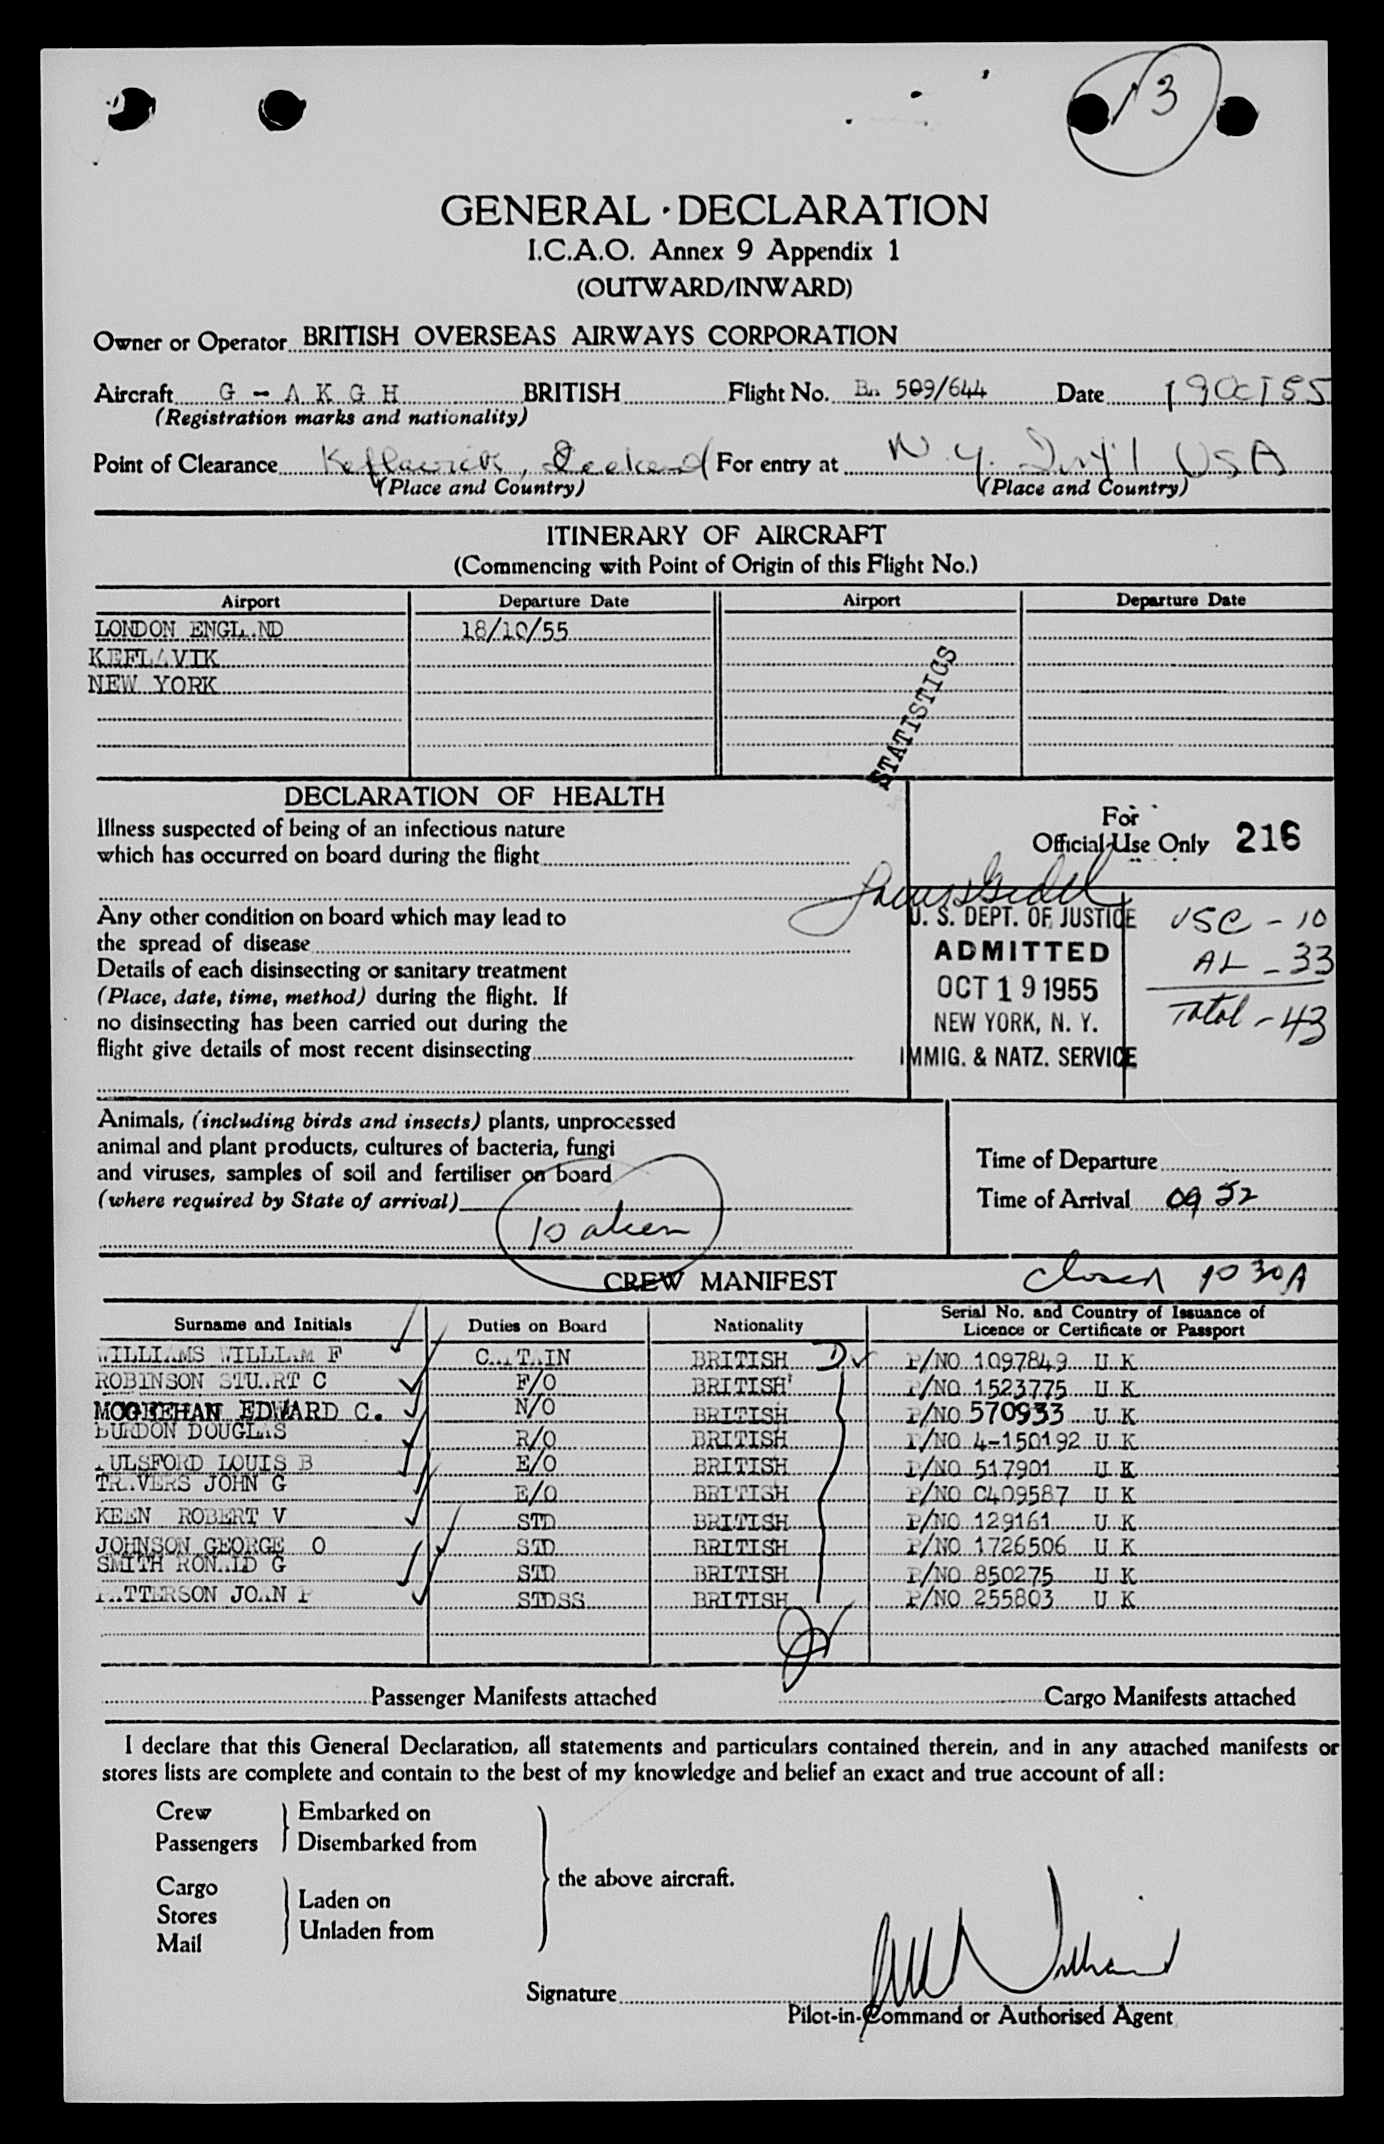 13
GENERAL · DECLARATION
I.C.A.O. Annex 9 Appendix 1
(OUTWARD/INWARD)
Owner or Operator BRITISH OVERSEAS AIRWAYS CORPORATION
Aircraft G - A K G H BRITISH Flight No. Ba 509/644 Date 19 Oct 55
(Registration marks and nationality)
Point of Clearance Keflavick, Iceland For entry at N. Y. Int'l USA
(Place and Country) (Place and Country)
ITINERARY OF AIRCRAFT
(Commencing with Point of Origin of this Flight No.)
Airport Departure Date Airport Departure Date
LONDON ENGLAND 18/10/55
KEFLAVIK
NEW YORK
STATISTICS
DECLARATION OF HEALTH
Illness suspected of being of an infectious nature
which has occurred on board during the flight
Any other condition on board which may lead to
the spread of disease
Details of each disinsecting or sanitary treatment
(Place, date, time, method) during the flight. If
no disinsecting has been carried out during the
flight give details of most recent disinsecting
For
Official Use Only 216
U. S. DEPT. OF JUSTICE
ADMITTED
OCT 19 1955
NEW YORK, N. Y.
IMMIG. & NATZ. SERVICE
USC - 10
AL - 33
Total - 43
Animals, (including birds and insects) plants, unprocessed
animal and plant products, cultures of bacteria, fungi
and viruses, samples of soil and fertiliser on board
(where required by State of arrival)
10 alien
Time of Departure
Time of Arrival 09 52
CREW MANIFEST
Closed 10 30 A
Surname and Initials Duties on Board Nationality Serial No. and Country of Issuance of Licence or Certificate or Passport
WILLIAMS WILLIAM F CAPTAIN BRITISH D P/NO 1097849 U K
ROBINSON STUART C F/O BRITISH P/NO 1523775 U K
MCGEEHAN EDWARD C. N/O BRITISH P/NO 570933 U K
BURDON DOUGLAS R/O BRITISH P/NO 4-150192 U K
PULSFORD LOUIS B E/O BRITISH P/NO 517901 U K
TRAVERS JOHN G E/O BRITISH P/NO C409587 U K
KEEN ROBERT V STD BRITISH P/NO 129161 U K
JOHNSON GEORGE O STD BRITISH P/NO 1726506 U K
SMITH RONALD G STD BRITISH P/NO 850275 U K
PATTERSON JOAN P STDSS BRITISH P/NO 255803 U K
Passenger Manifests attached Cargo Manifests attached
I declare that this General Declaration, all statements and particulars contained therein, and in any attached manifests or
stores lists are complete and contain to the best of my knowledge and belief an exact and true account of all:
Crew Embarked on
Passengers Disembarked from
the above aircraft.
Cargo Laden on
Stores
Unladen from
Mail
Signature
Pilot-in-Command or Authorised Agent